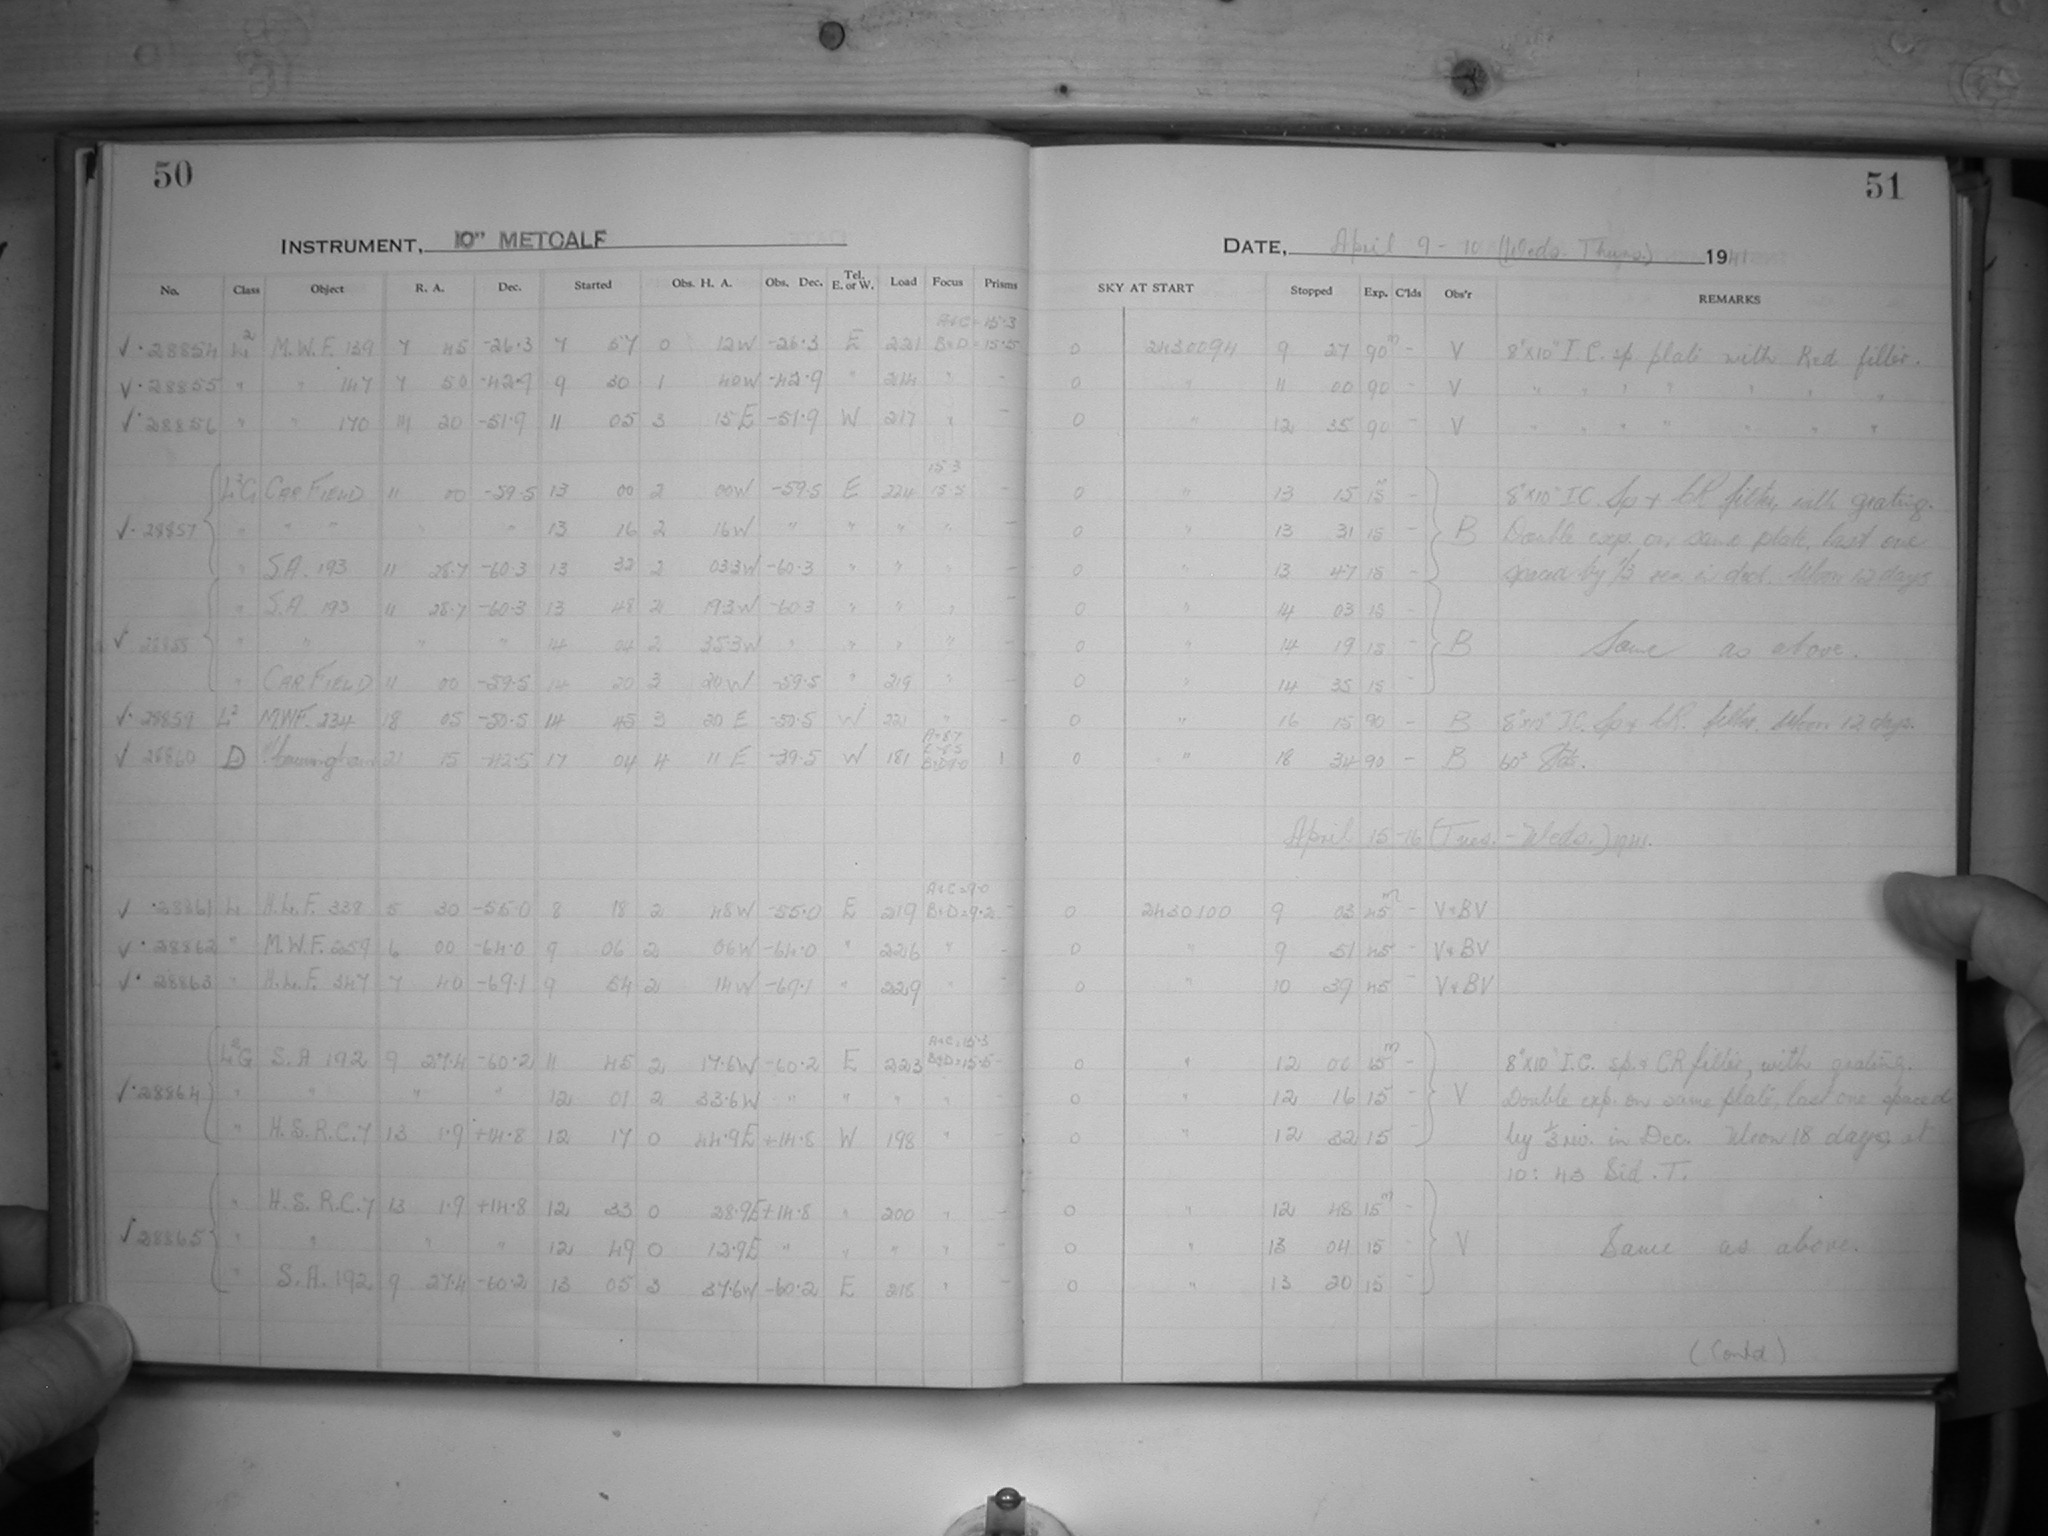 50
51
INSTRUMENT, 10" METCALF
DATE, April 9-10 (Weds. Thurs.) 1941
No. Class Object R. A. Dec. Started Obs. H. A. Obs. Dec. Tel. E. or W. Load Focus Prisms SKY AT START Stopped Exp. C'lds Obs'r REMARKS
A+C=15.3
✓·28854 L² M.W.F. 139 7 45 -26.3 7 57 0 12W -26.3 E 221 B+D=15.5 0 2430094 9 27 90m - V 8"x10" I.C. sp. plate with Red filter.
✓·28855 " " 147 7 50 -42.9 9 30 1 40W -42.9 " 214 " - 0 " 11 00 90 - V " " " " " " "
✓·28856 " " 170 20 -51.9 11 05 3 15E -51.9 W 217 " - 0 " 12 35 90 - V " " " " " " "
15.3
CAR FIELD 11 00 -59.5 13 00 2 00W -59.5 E 224 15.5 0 " 13 15 15m - 8"x10" I.C. Sp + CR filter, with grating.
✓·28857 " " " " " 13 16 2 16W " " " " - 0 " 13 31 15 - B Double exp. on same plate, last one
" S.A. 193 11 28.7 -60.3 13 32 2 03.3W -60.3 " " " - 0 " 13 47 15 - spaced by 1/3 in decl. Moon 12 days
" S.A. 193 11 28.7 -60.3 13 48 2 19.3W -60.3 " " " - 0 " 14 03 15
✓ 28858 " " " " 14 04 2 35.3W " " " " - 0 " 14 19 15 - B Same as above.
" CAR FIELD 11 00 -59.5 14 20 3 20W -59.5 " 219 " - 0 " 14 35 15 -
✓·28859 L² M.W.F. 234 18 05 -50.5 14 45 3 20 E -50.5 W 221 " - 0 " 16 15 90 - B 8"x10" I.C. Sp + CR. filter. Moon 12 days.
✓ 28860 D Cunningham 21 15 -42.5 17 04 4 11 E -39.5 W 181 1 0 " 18 34 90 - B
April 15-16 (Tues. - Weds.) 1941.
A+C=9.0
✓·28861 L H.L.F. 338 5 30 -55.0 8 18 2 48W -55.0 E 219 B+D=9.2 - 0 2430100 9 03 45m - V+BV
✓·28862 " M.W.F. 259 6 00 -64.0 9 06 2 06W -64.0 " 226 " - 0 " 9 51 45 - V+BV
✓·28863 " H.L.F. 347 7 40 -69.1 9 54 2 14W -69.1 " 229 " - 0 " 10 39 45 - V+BV
A+C=15.3
L²G S.A 192 9 27.4 -60.2 11 45 2 17.6W -60.2 E 223 B+D=15.5 - 0 " 12 00 15m - 8"x10" I.C. sp.+ CR filter, with grating.
✓·28864 " " " " 12 01 2 33.6W " " " " 0 " 12 16 15 - V Double exp. on same plate, last one spaced
" H.S.R.C.7 13 1.9 +14.8 12 17 0 44.9E +14.8 W 198 " - 0 " 12 32 15 - by 1/3 in Dec. Moon 18 days, at
10: 43 Sid. T.
" H.S.R.C.7 13 1.9 +14.8 12 33 0 28.9E +14.8 " 200 " - 0 " 12 48 15m -
✓28865 " " " " 12 49 0 12.9E " " " " - 0 " 13 04 15 - V Same as above.
" S.A. 192 9 27.4 -60.2 13 05 3 37.6W -60.2 E 218 " - 0 " 13 20 15 -
(Contd)